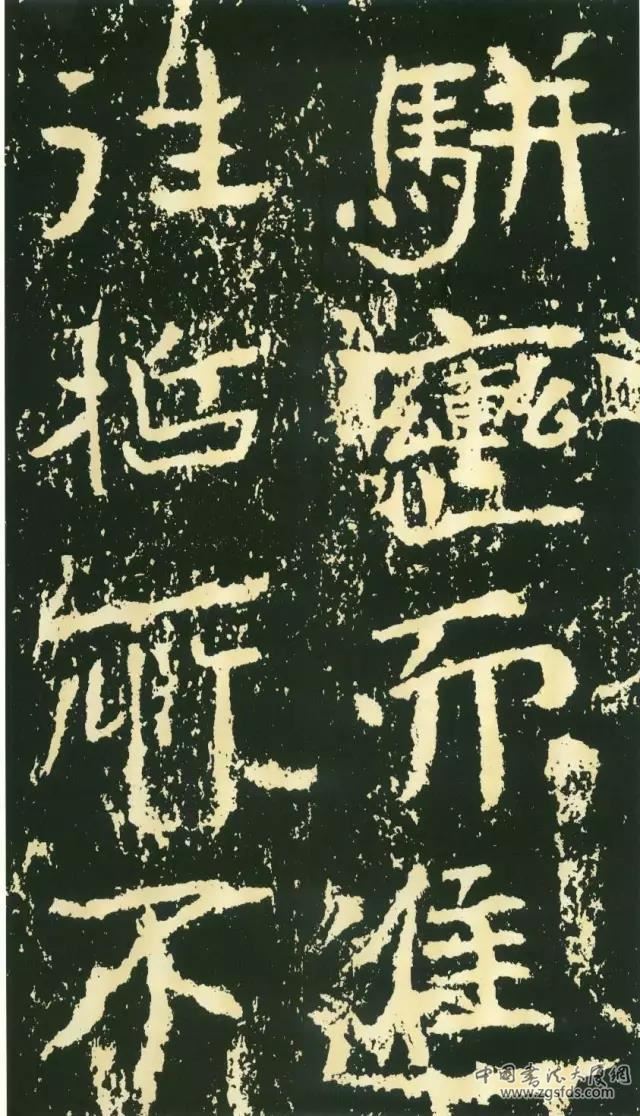 駢轡而進
往哲所不
中国书法大师网
www.zgsfds.com